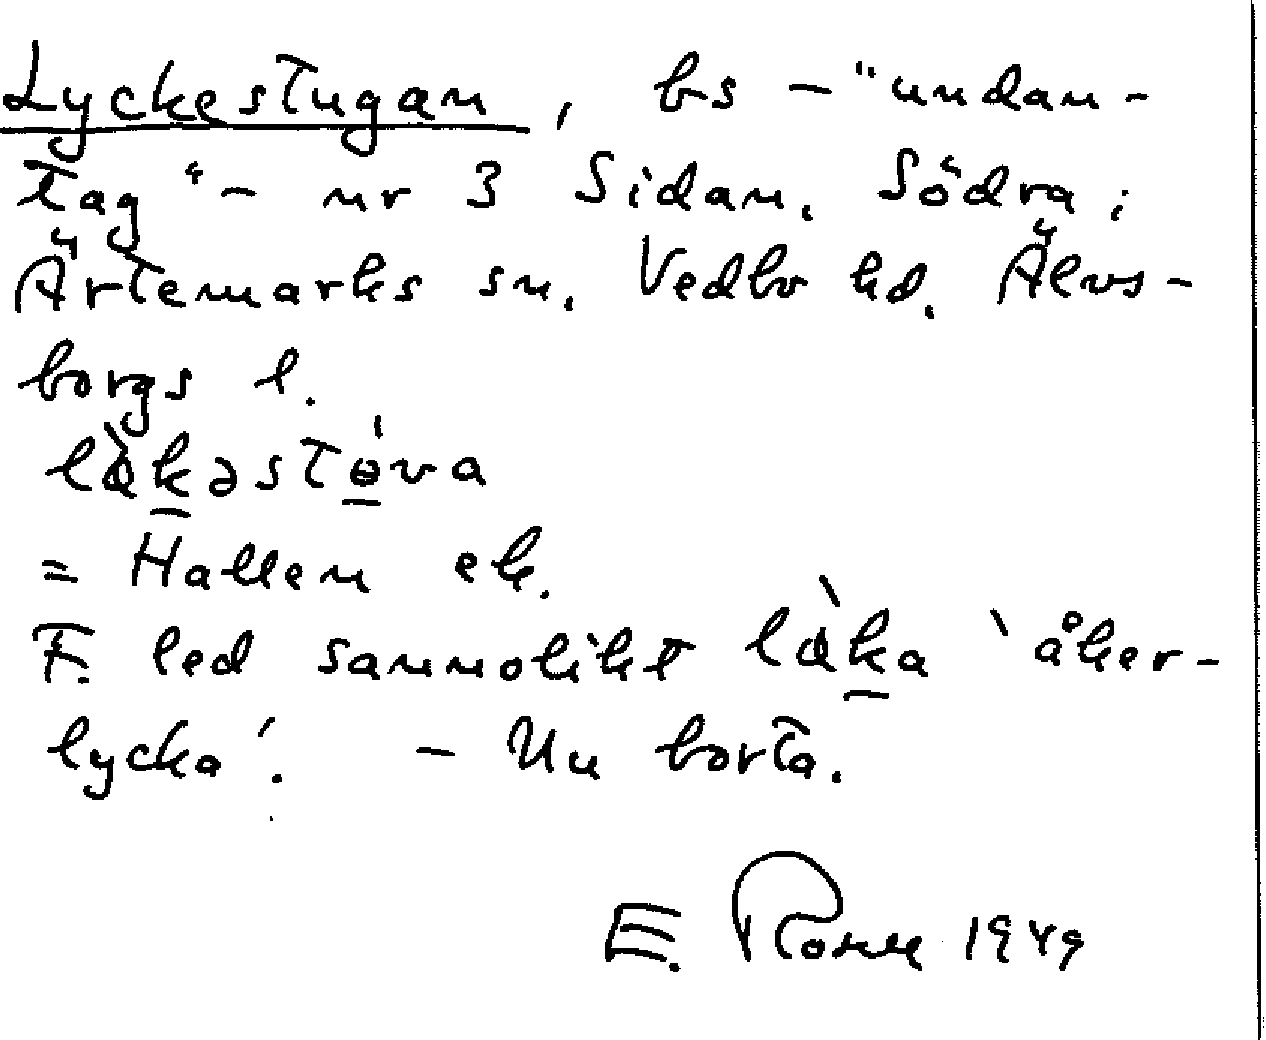 Lyckestugan, bs – "undan-
tag" – nr 3 Sidan, Södra i
Ärtemarks sn. Vedbo hd. Älvs-
borgs l.
= Hallen ek.
F. led sannolikt 'åker-
lycka'. – Nu borta.
E. 1949